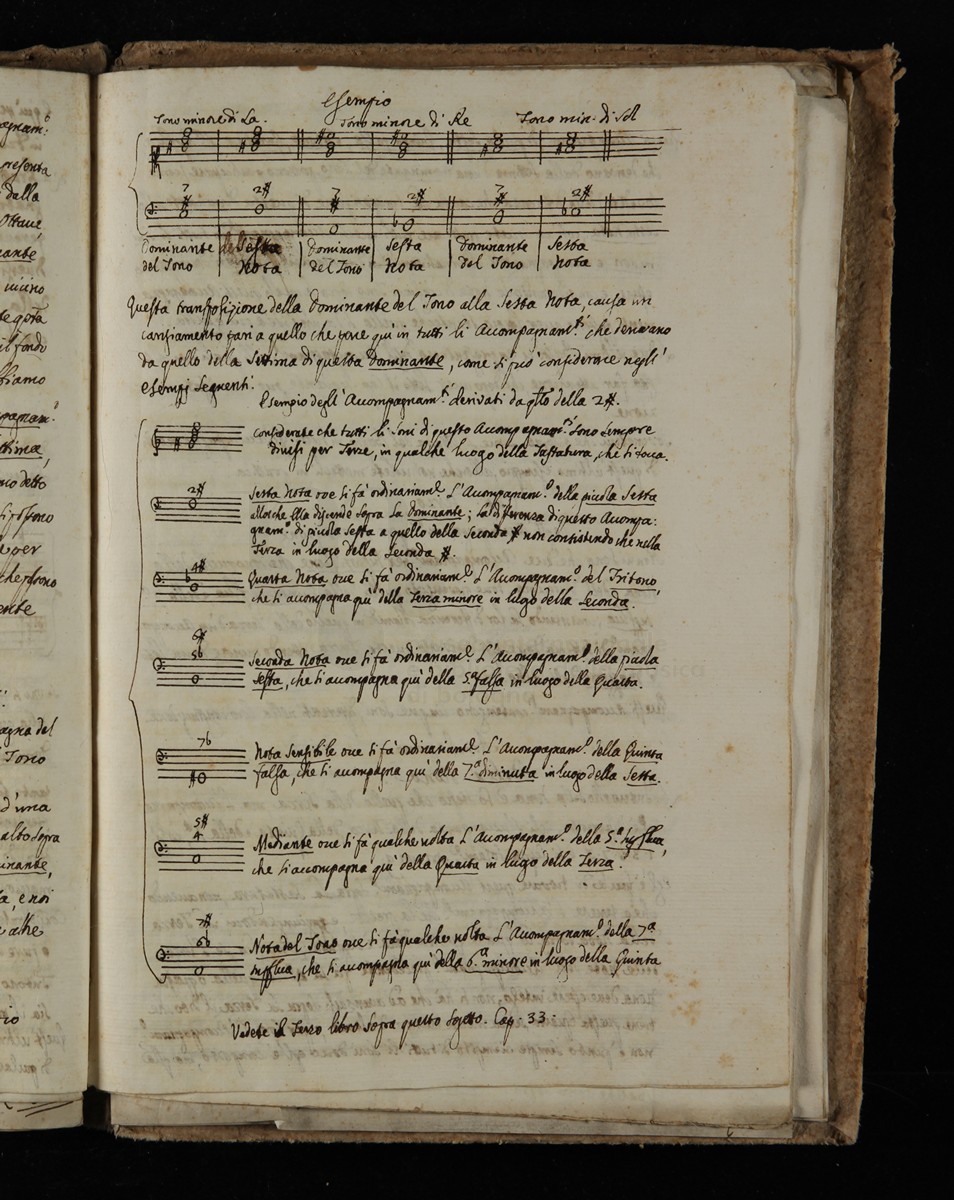 Esempio
Tono minore di La. Tono minore di Re Tono min. di Sol
7 2# 7 2# 7 2#
Dominante Sesta Dominante Sesta Dominante Sesta
del Tono Nota del Tono Nota del Tono Nota
Questa transposizione della Dominante del Tono alla Sesta Nota, causa un
cangiamento pari a quello che pone quì in tutti li Accompagnam.ti che derivano
da quello della Settima di questa Dominante, come si può considerare negli
esempj seguenti.
Esempio degli Acompagnam.ti derivati da q.llo della 2#.
Considerate che tutti li Soni di questo Accompagnam.o sono sempre
divisi per Terze, in qualche luogo della Tastatura, che si toca.
2#
Sesta Nota ove si fà ordinariam.e L'Acompagnam.o della picola Sesta
Allorche Ella discende sopra la Dominante; la differenza di questo Acompa:
gnam.o di picola Sesta a quello della Seconda # non consistendo che nella
Terza in luogo della Seconda #.
4#
b
Quarta Nota ove si fà ordinariam.e L'Acompagnam.o del Tritono,
che si acompagna quì della Terza minore in luogo della Seconda.
6#
5b
Seconda Nota ove si fà ordinariam.e L'Acompagnam.o della picola
Sesta, che si acompagna quì della 5.a falsa in luogo della Quarta.
7b
Nota Sensibile ove si fà ordinariam.e L'Acompagnam.o della Quinta
falsa, che si acompagna quì della 7.a diminuta in luogo della Sesta.
5#
4
Mediante ove si fà qualche volta L'Acompagnam.o della 5.a supflua,
che si acompagna quì della Quarta in luogo della Terza.
7#
6b
Nota del Tono ove si fà qualche volta L'Acompagnam.o della 7.a
supflua, che si acompagna quì della 6.a minore in luogo della Quinta
Vedete il Terzo libro sopra questo Sogetto. Cap. 33.